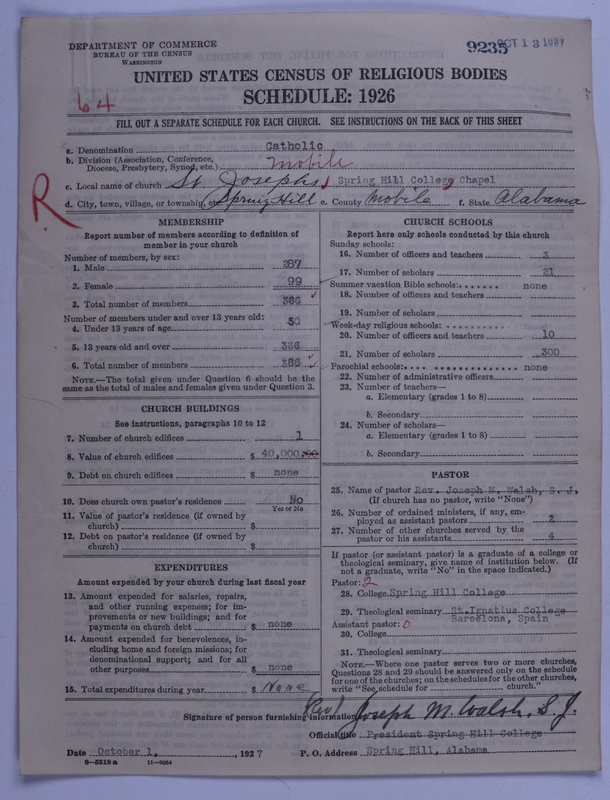 DEPARTMENT OF COMMERCE
BUREAU OF THE CENSUS
WASHINGTON
9235 OCT 13 1927
UNITED STATES CENSUS OF RELIGIOUS BODIES
SCHEDULE: 1926
64
FILL OUT A SEPARATE SCHEDULE FOR EACH CHURCH. SEE INSTRUCTIONS ON THE BACK OF THIS SHEET
a. Denomination Catholic
b. Division (Association, Conference, Diocese, Presbytery, Synod, etc.) Mobile
c. Local name of church St Josephs, Spring Hill College, Chapel
d. City, town, village, or township, etc. Spring Hill e. County Mobile f. State Alabama
R
MEMBERSHIP
Report number of members according to definition of
member in your church
Number of members, by sex:
1. Male 287
2. Female 99
3. Total number of members 386
Number of members under and over 13 years old:
4. Under 13 years of age 50
5. 13 years old and over 336
6. Total number of members 386
NOTE.—The total given under Question 6 should be the
same as the total of males and females given under Question 3.
CHURCH BUILDINGS
See instructions, paragraphs 10 to 12
7. Number of church edifices 1
8. Value of church edifices $ 40,000.00
9. Debt on church edifices $ none
10. Does church own pastor's residence No
Yes or No
11. Value of pastor's residence (if owned by
church) $
12. Debt on pastor's residence (if owned by
church) $
EXPENDITURES
Amount expended by your church during last fiscal year
13. Amount expended for salaries, repairs,
and other running expenses; for im-
provements or new buildings; and for
payments on church debt $ none
14. Amount expended for benevolences, in-
cluding home and foreign missions; for
denominational support; and for all
other purposes $ none
15. Total expenditures during year $ None
CHURCH SCHOOLS
Report here only schools conducted by this church
Sunday schools:
16. Number of officers and teachers 3
17. Number of scholars 21
Summer vacation Bible schools: none
18. Number of officers and teachers
19. Number of scholars
Week-day religious schools: none
20. Number of officers and teachers 10
21. Number of scholars 300
Parochial schools: none
22. Number of administrative officers
23. Number of teachers—
a. Elementary (grades 1 to 8)
b. Secondary
24. Number of scholars—
a. Elementary (grades 1 to 8)
b. Secondary
PASTOR
25. Name of pastor Rev. Joseph M. Walsh, S. J.
(If church has no pastor, write "None")
26. Number of ordained ministers, if any, em-
ployed as assistant pastors 2
27. Number of other churches served by the
pastor or his assistants 4
If pastor (or assistant pastor) is a graduate of a college or
theological seminary, give name of institution below. (If
not a graduate, write "No" in the space indicated.)
Pastor: 2
28. College Spring Hill College
29. Theological seminary St. Ignatius College
Barcelona, Spain
Assistant pastor: 0
30. College
31. Theological seminary
NOTE.—Where one pastor serves two or more churches,
Questions 28 and 29 should be answered only on the schedule
for one of the churches; on the schedules for the other churches,
write "See schedule for church."
Signature of person furnishing information (Rev) Joseph M. Walsh, S. J.
Official title President Spring Hill College
Date October 1, 1927 P. O. Address Spring Hill, Alabama
8-5518a 11-9034